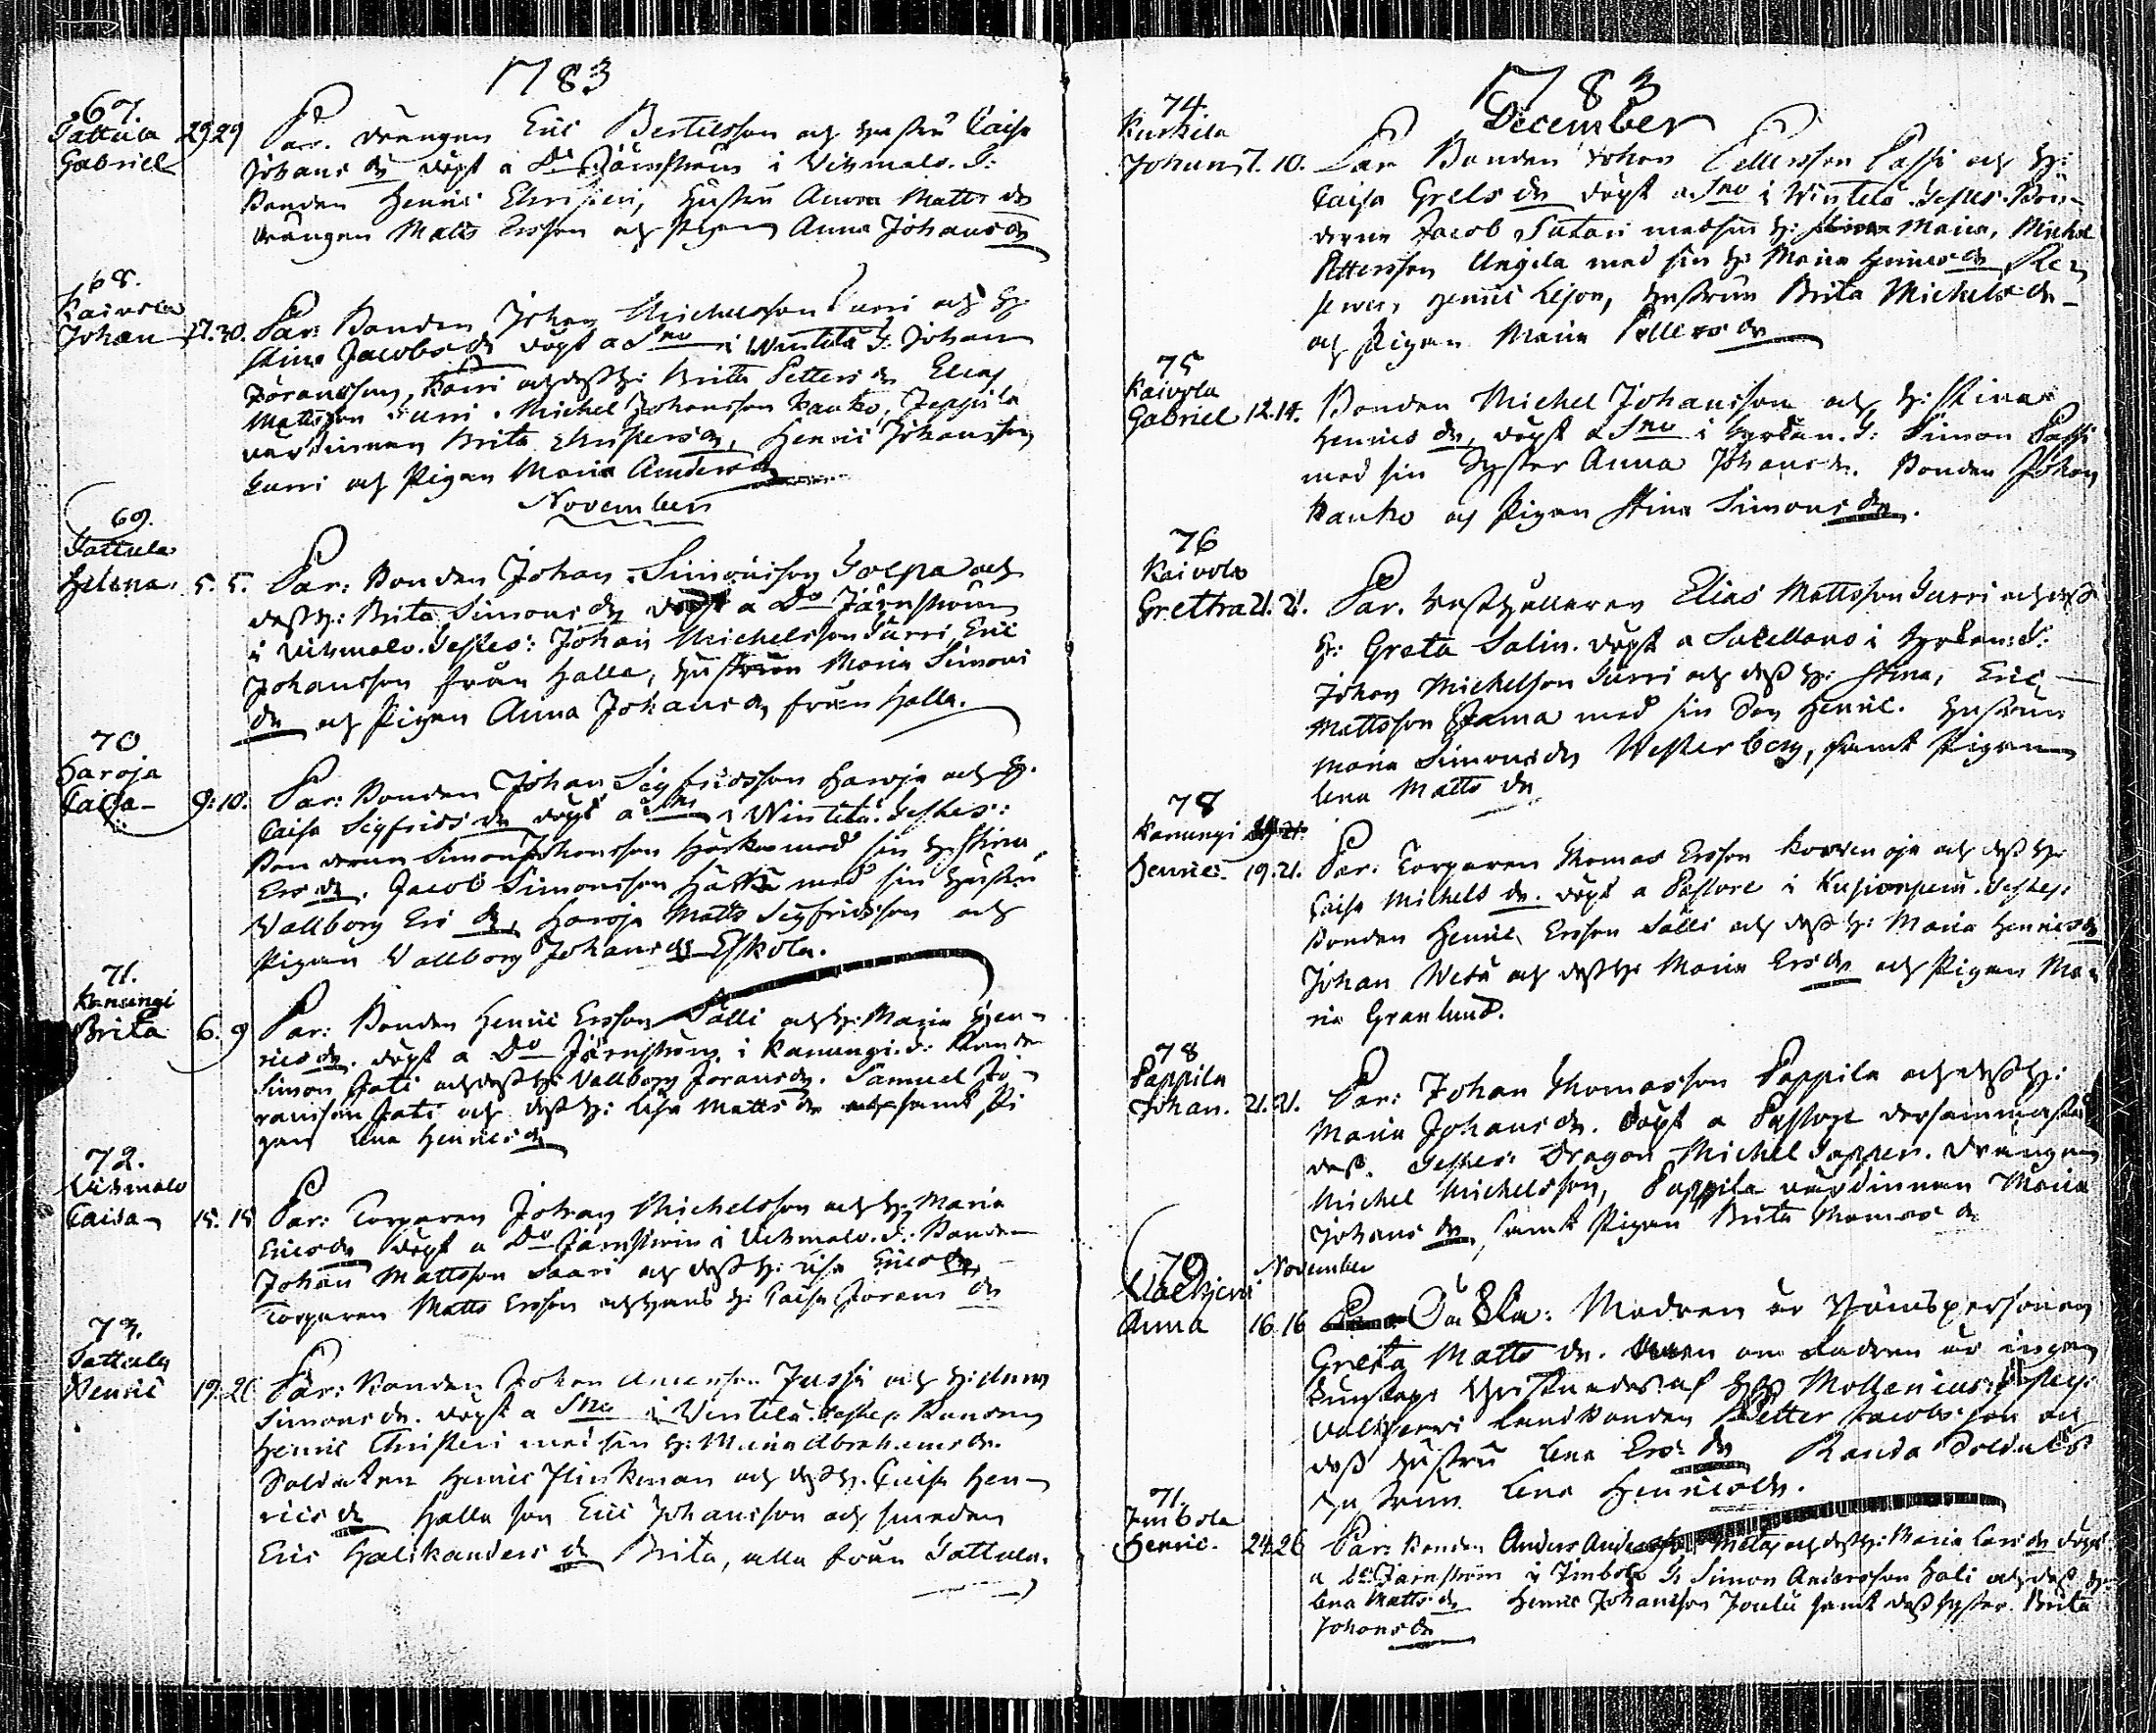 1783
67.
Tattula
Gabriel
29 29
Par. drengen Eric Bertilsson och hustru Caisa
Johans dr döpt a Do Järnström i Vihmalo. T:
Bonden Henric Christeri, Hustru Anna Matts dr
drängen Matts Ersson och Pigan Anna Johans dr
68.
Kaivola
Johan
27. 30.
Par: Bonden Johan Michelsson Surri och H:
Stina Jacobs dr döpt a Sno i Wintela T: Johan
Jöransson, och dess h: Britta Petters dr Elias
Mattsson Surri. Michel Johansson Kauko, Jeppila
värdinnan Brita Christers dr, Henric Johansson
Surri och Pigan Maria Anders dr
November
69.
Tattula
Helena. 5. 5.
Par: Bonden Johan Simonsson och
dess h: Brita Simons dr döpt a Do Järnström
i Vihmalo. Testes: Johan Michelsson Surri, Eric
Johansson från Halla, hustrun Maria Simons
dr och Pigan Anna Johans dr från Halla.
70
Haroja
Caisa 9. 10.
Par: Bonden Johan Sigfridsson Haroja och H.
Caisa Sigfrids dr döpt a Sno i Wintelä. Testes:
Bonderna Simon Johansson med sin H: Stina
Ers dr. Jacob Simonsson med sin Hustru
Vallborg Ers dr, Haroja Matts Sigfridsson och
Pigan Vallborg Johans dr Eskola.
71.
Kanungi
Brita 6. 9
Par: Bonden Henric Ersson Sälli och H: Maria Hen-
rics dr. döpt a Do Järnström i Kanungi. T: Bonden
Simon Jati och dess h: Vallborg Jörans dr. Samuel Jö-
ransson Jati och dess h: Lisa Matts dr samt Pi
gan Lena Henrics dr
72.
Vihmalo
Caisa 15. 15
Par: Torparen Johan Michelsson och H: Maria
Erics dr döpt a Do Järnström i Vihmalo. T. Bonden
Johan Mattsson Saari och dess H: Lisa Erics dr,
Torparen Matts Ersson och hans h: Caisa Jörans dr
73.
Tattula
Henric 19. 21
Par: Bonden Johan Andersson Jussi och H: Anna
Simons dr. döpt a Sno i Vintelä. Testes: Bonden
Henric Christeri med sin H: Maria Abrahams dr.
Soldaten Henric Flinkman och dess H. Caisa Hen-
rics dr Halla son Eric Johansson och smeden
Eric Halikanders dr Brita, alla från Tattula.
1783
December
74.
Kurkila
Johan 7. 10.
Par Bonden Johan Pettersson Passi och H:
Caisa Grels dr döpt a Sno i Wintelä. Testes. Bön-
derne Jacob Sutari med sin H: Maria, Michel
Pettersson Ungila med sin H: Maria Henrics dr
Henric Lejon, Hustrun Brita Michels dr
och Pigan Maria Petters dr
75
Kaivola
Gabriel 12. 14.
Bonden Michel Johansson och H: Stina
Henrics dr, döpt a Sno i kyrkan. T: Simon Passi
med sin Syster Anna Johans dr. Bonden Johan
Kauko och Pigan Stina Simons dr.
76
Kaivola
Gretha 21. 21.
Par. Elias Mattsson Surri och dess
H: Greta Salin. döpt a Sacellano i kyrkan: T:
Johan Michelsson Surri och dess H: Stina, Eric
Mattsson Jama med sin Son Henric. Hustrun
Maria Simons dr Westerberg, samt Pigan
Lena Matts dr
78
Kanungi
Henric. 19. 21.
Par: Torparen Thomas Ersson Korvenoja och dess H:
Caisa Michels dr. döpt a Pastore i Kusionperä. Testes:
Bonden Henric Ersson Sälli och dess H: Maria Henrics dr
Johan Wetu och dess H: Maria Ers dr och Pigan Ma-
ria Granlund.
78
Pappila
Johan. 21. 21.
Par: Johan Thomasson Pappila och dess H:
Maria Johans dr. döpt a Pastore dersammastä-
des. Testes: Dragon Michel Tapper. Drängen
Michel Michelsson, Pappila värdinnan Maria
Johans dr, samt Pigan Brita Thomas dr
79
November
Valkjervi
Anna 16 16
Oächta: Modren är Qvinspersonen
Greta Matts dr. men om Fadren är ingen
kunskap. Christnades af H: Mollenius: Testes:
Valkjerwi Landbonden Petter Jacobsson och
dess Hustru Lena Ers dr Randa Soldats
hustrun Lena Henrics dr.
71.
Jmbola
Henric. 24 26
Par: Bonden Anders Andersson och dess H: Maria Lars dr döpt
a Do Järnström i Jmbola Ts Simon Andersson Hali och dess H:
Lena Matts dr Henric Johansson Joulu samt dess Syster. Brita
Johans dr